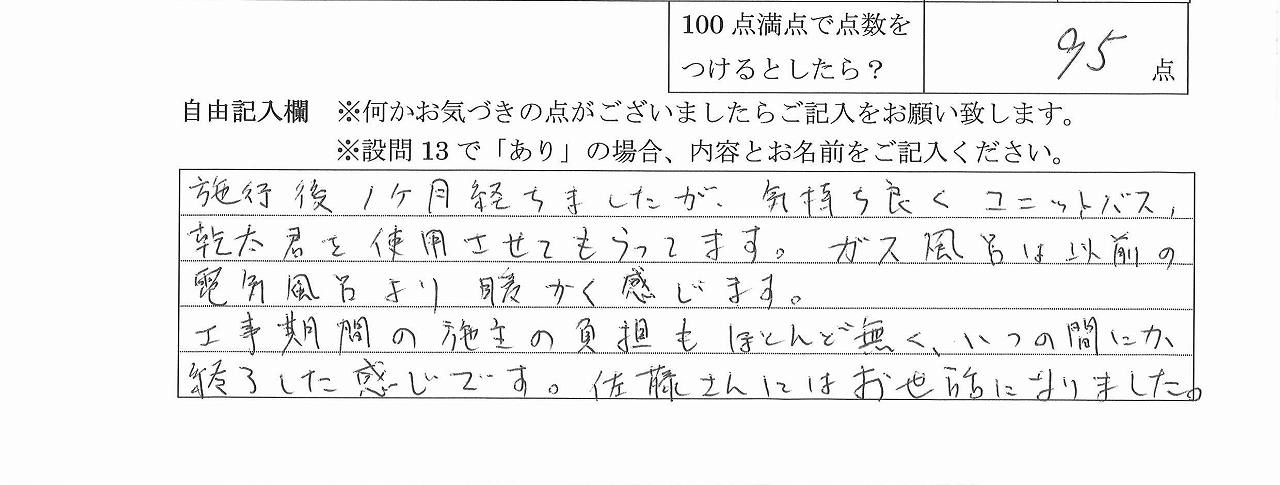 100 点満点で点数を
つけるとしたら？
95 点
自由記入欄 ※何かお気づきの点がございましたらご記入をお願い致します。
※設問 13 で「あり」の場合、内容とお名前をご記入ください。
施行後1ケ月経ちましたが、気持ち良くユニットバス,
乾太君を使用させてもらってます。ガス風呂は以前の
電気風呂より暖かく感じます。
工事期間の施主の負担もほとんど無く、いつの間にか
終了した感じです。佐藤さんにはお世話になりました。